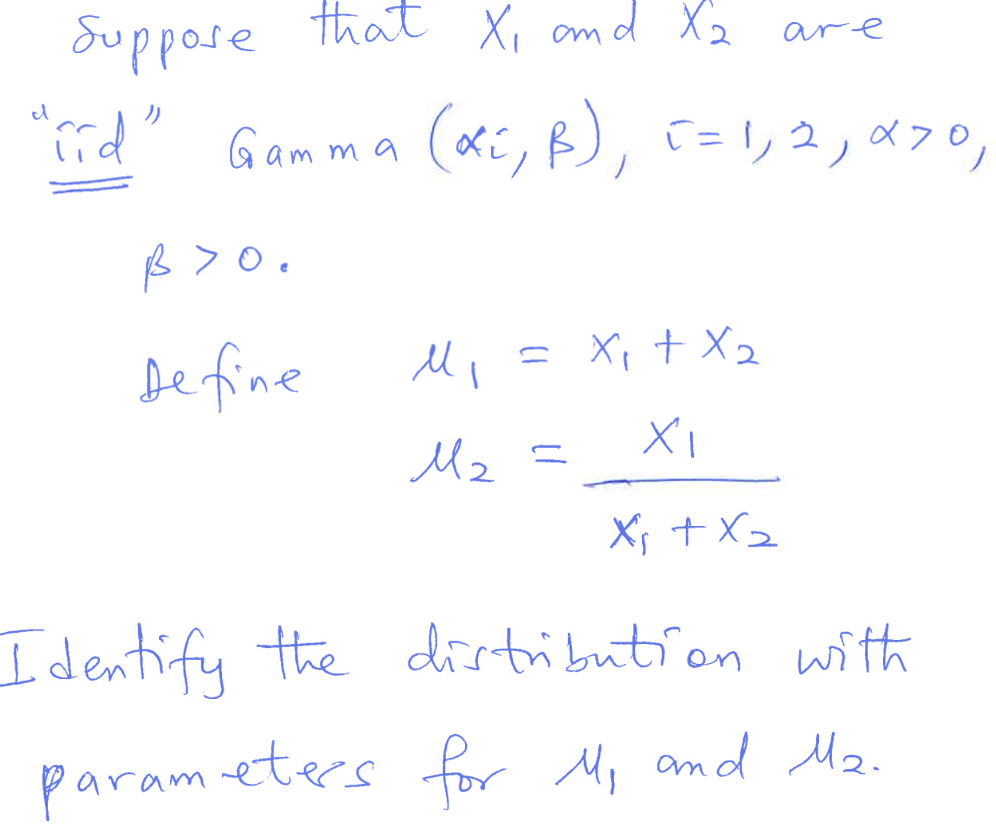 Suppose that X₁ and X₂ are
"iid" Gamma (αi, β), i=1, 2, α>0,
β>0.
Define μ₁ = X₁ + X₂
μ₂ = X₁ / X₁ + X₂
Identify the distribution with
parameters for μ₁ and μ₂.